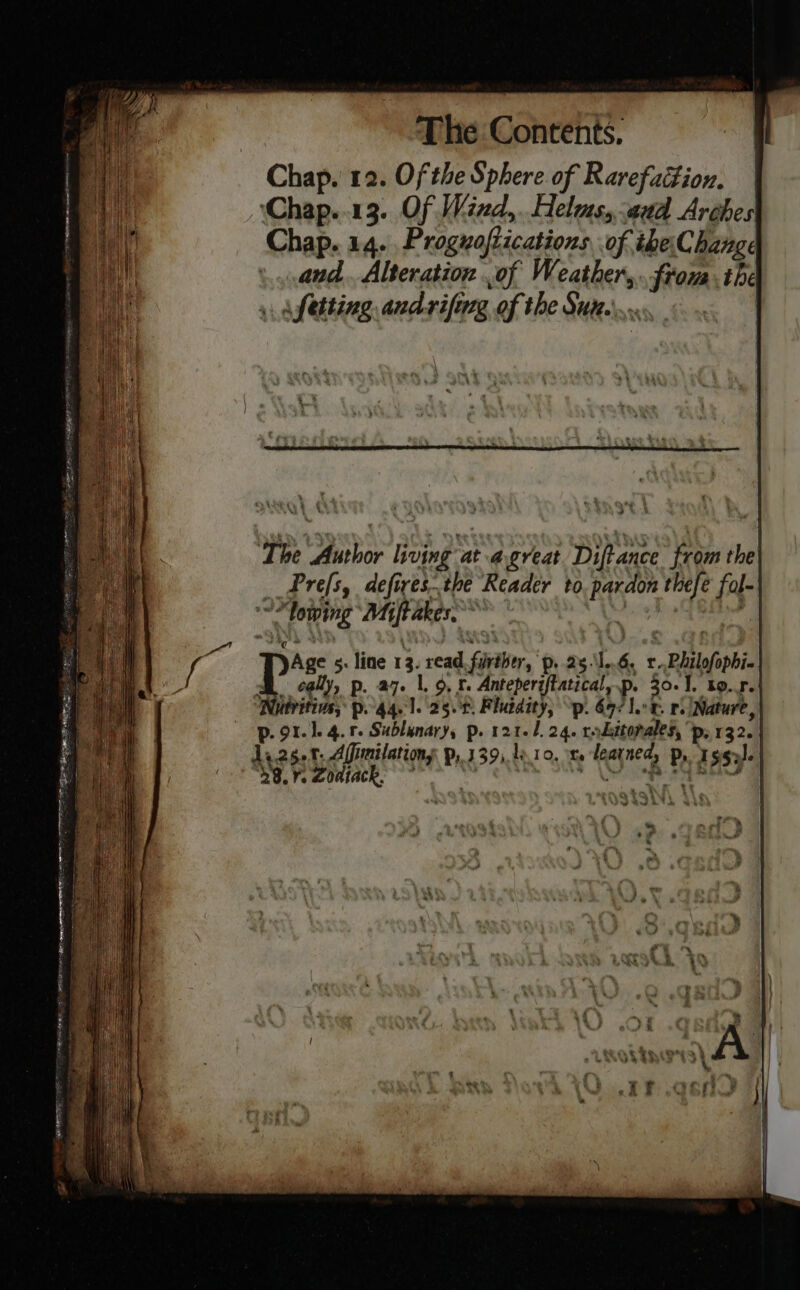 The Contents.
Chap. 12. Of the Sphere of Rarefaction.
Chap. 13. Of Wind, Helms, and Arches
Chap. 14. Prognoſtications of the Change
and Alteration of Weather, from the
ſetting and riſing of the Sun.
The Author living at a great Diſtance from the
Preſs, deſires the Reader to pardon theſe fol-
lowing Miſtakes.
PAge 5. line 13. read further, p. 25. l. 6. r. Philoſophi-
cally, p. 27. l. 9. r. Anteperiſtatical, p. 30. l. 10. r.
Nutritius, p. 44. l. 25. r. Fluidity, p. 67. l. r. Nature,
p. 91. l. 4. r. Sublunary, p. 121. l. 24. r. Litorales, p. 132.
l. 25. r. Aſſimilation, p. 139. l. 10. r. learned, p. 155. l.
28. r. Zodiack.
A